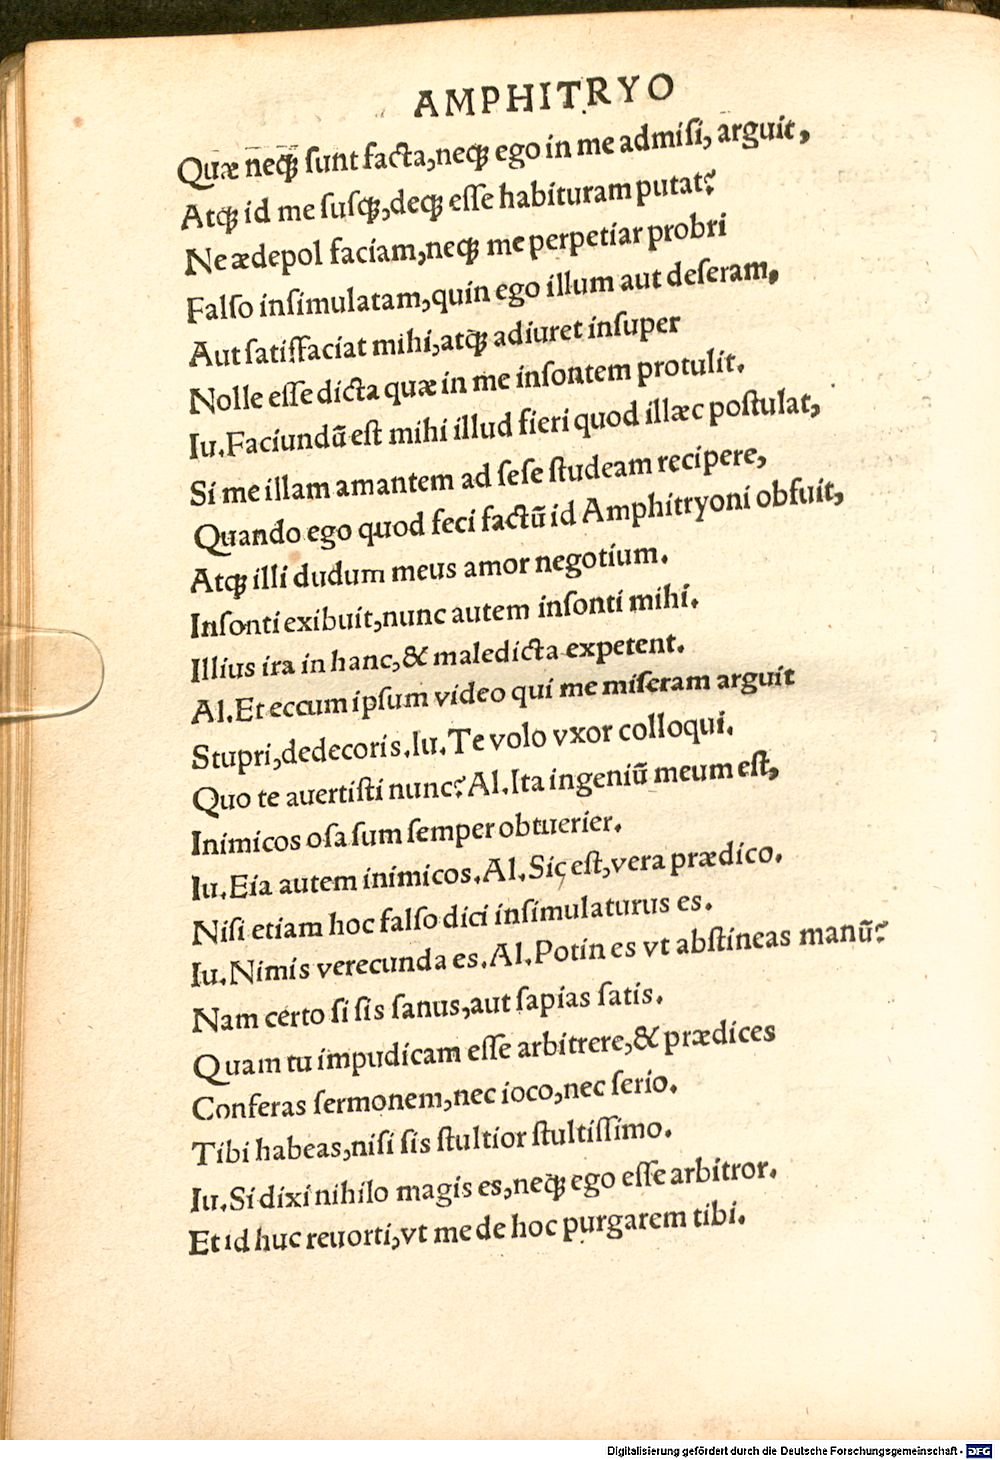 AMPHITRYO
Quæ neq̃ ſunt facta,neq̃ ego in me admiſi, arguit,
Atq̃ id me ſuſq̃,deq̃ eſſe habituram putat?
Ne ædepol faciam,neq̃ me perpetiar probri
Falſo inſimulatam,quin ego illum aut deſeram,
Aut ſatiſfaciat mihi,atq̃ adiuret inſuper
Nolle eſſe dicta quæ in me inſontem protulit.
Iu.Faciundũ eſt mihi illud fieri quod illæc poſtulat,
Si me illam amantem ad ſeſe ſtudeam recipere,
Quando ego quod feci factũ id Amphitryoni obfuit,
Atq̃ illi dudum meus amor negotium.
Inſonti exibuit,nunc autem inſonti mihi.
Illius ira in hanc,& maledicta expetent.
Al.Et eccum ipſum video qui me miſeram arguit
Stupri,dedecoris.Iu.Te volo vxor colloqui.
Quo te auertiſti nunc?Al.Ita ingeniũ meum eſt,
Inimicos oſa ſum ſemper obtuerier.
Iu.Eia autem inimicos.Al.Sic eſt,vera prædico.
Niſi etiam hoc falſo dici inſimulaturus es.
Iu.Nimis verecunda es.Al.Potin es vt abſtineas manũ?
Nam certo ſi ſis ſanus,aut ſapias ſatis.
Quam tu impudicam eſſe arbitrere,& prædices
Conferas ſermonem,nec ioco,nec ſerio.
Tibi habeas,niſi ſis ſtultior ſtultiſſimo.
Iu.Si dixi nihilo magis es,neq̃ ego eſſe arbitror.
Et id huc reuorti,vt me de hoc purgarem tibi.
Digitalisierung gefördert durch die Deutsche Forschungsgemeinschaft - DFG